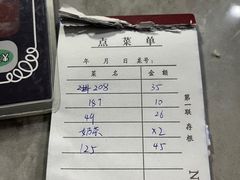 点菜单
年 月 日 桌号:
菜名 金额
208 35
187 10
49 26
奶茶 x2
125 45
第一联 存根
N